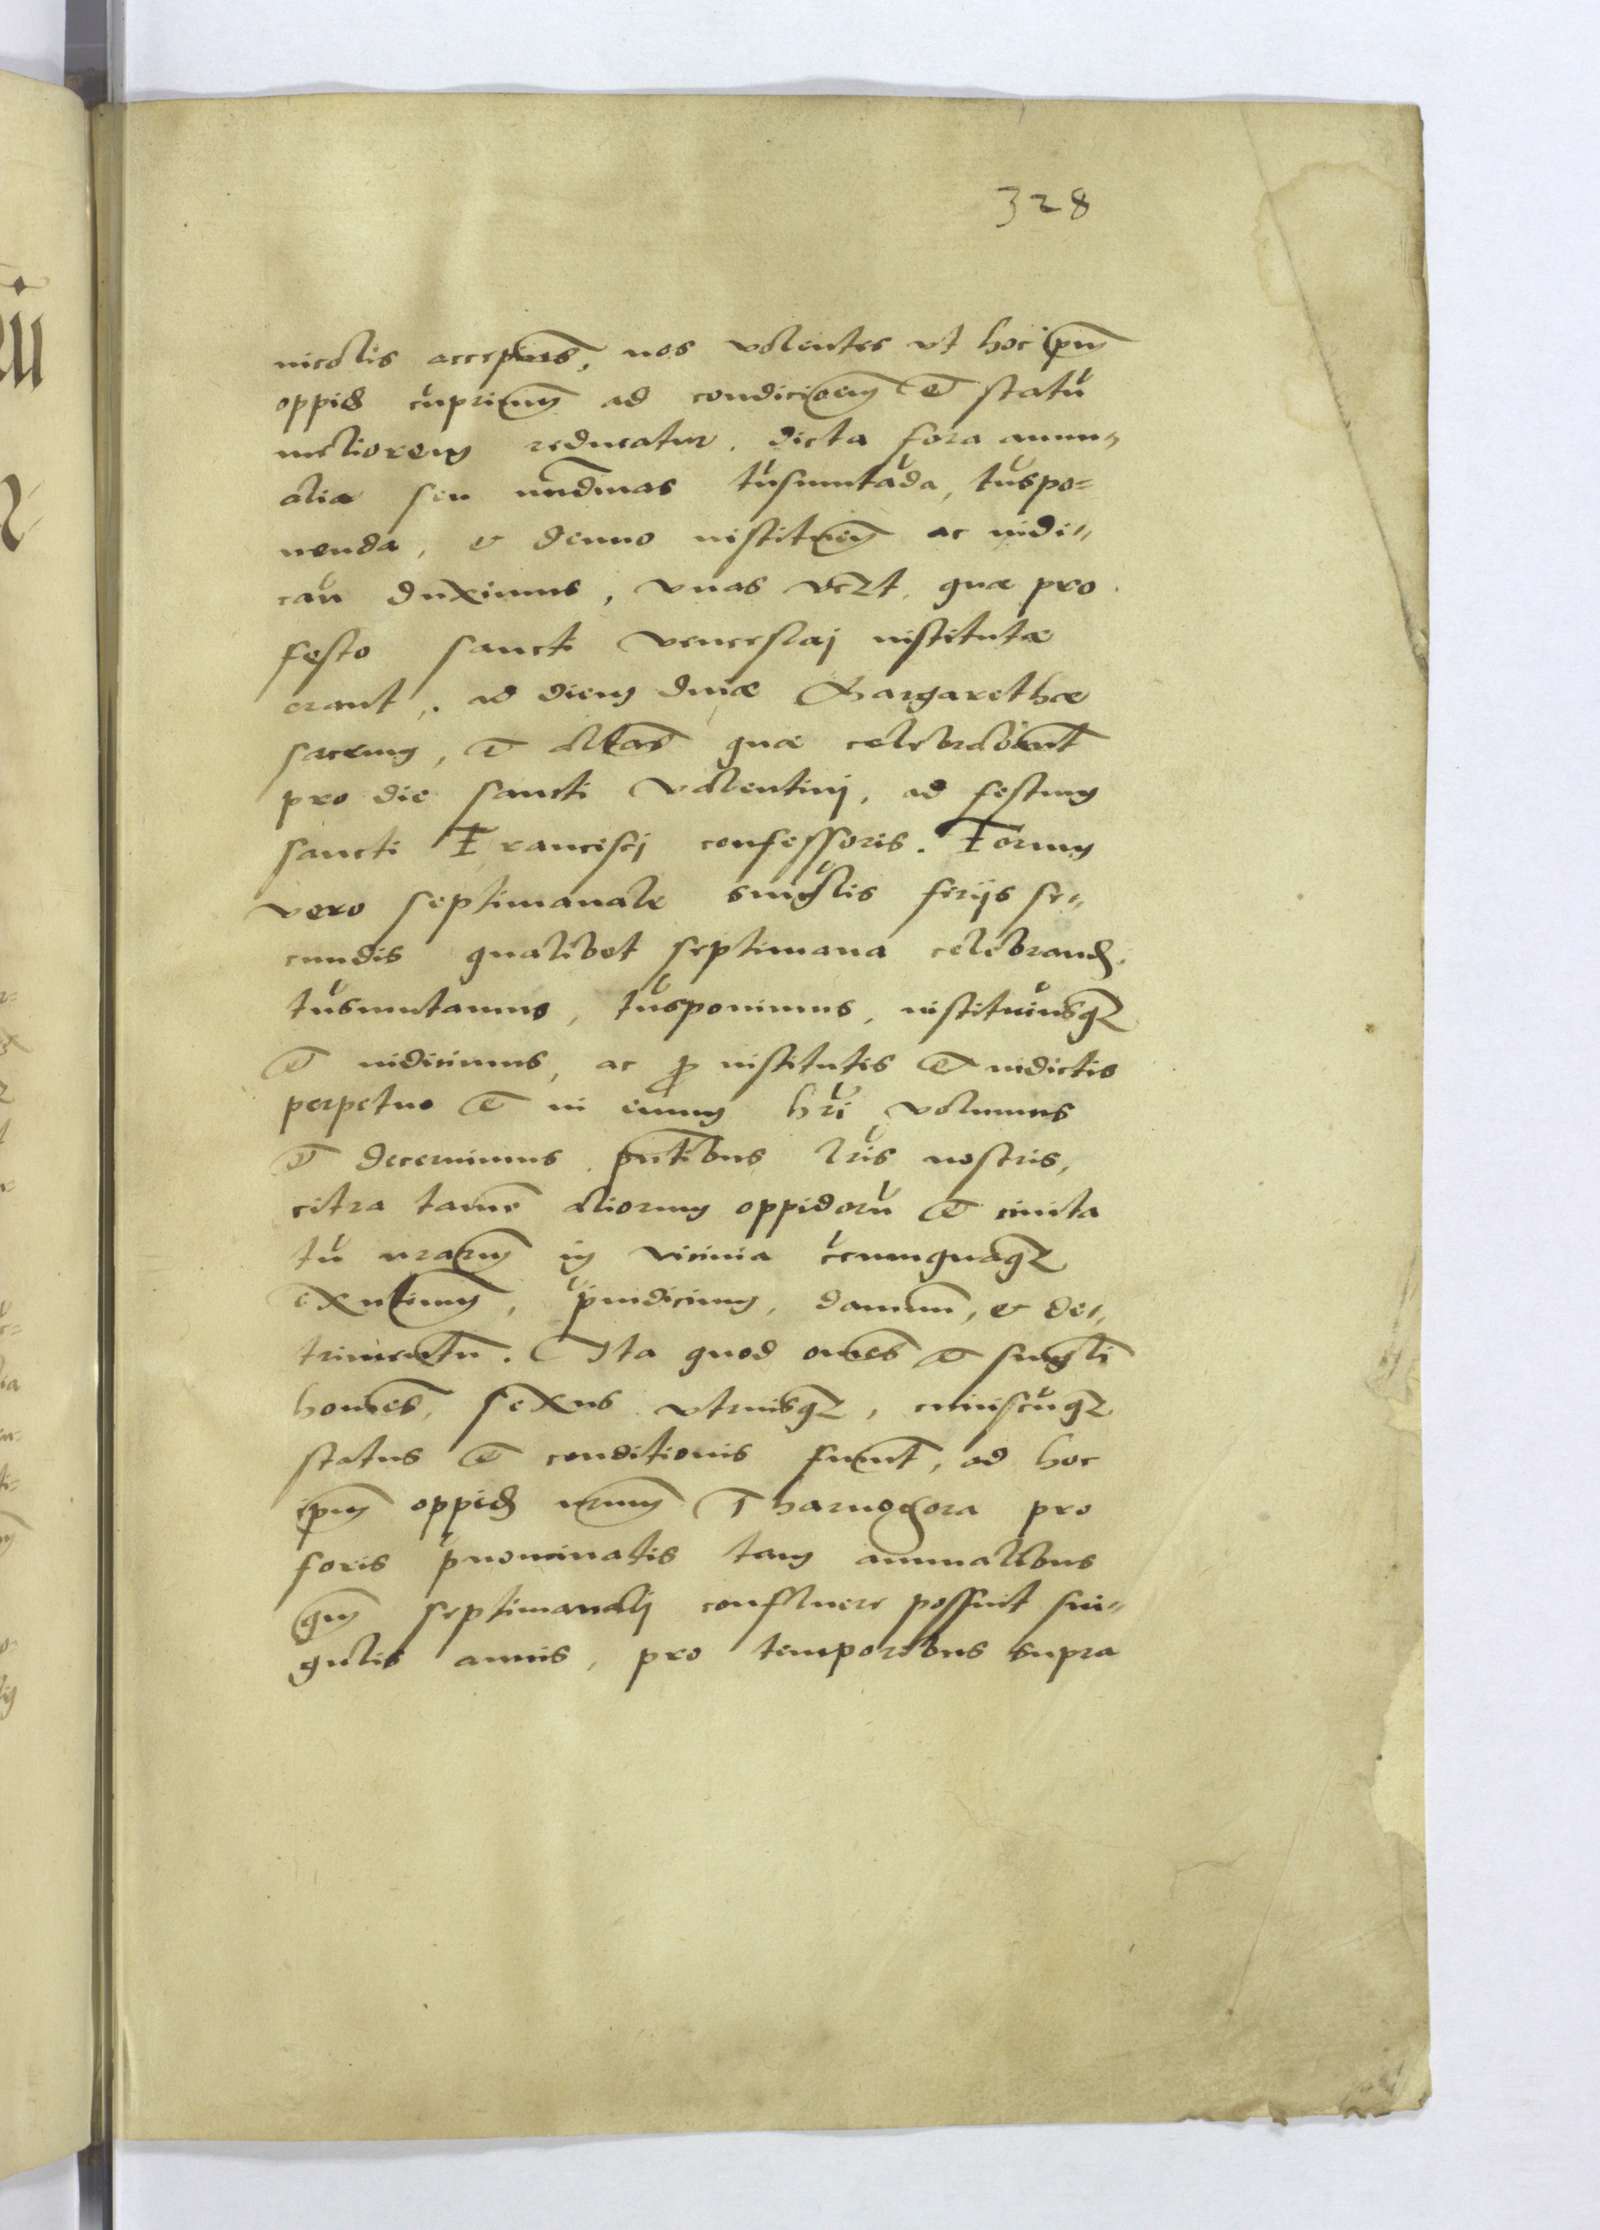 328
incolis accepimus, nos volentes ut hoc ipm
oppid cuprimum ad condicionem et statu
meliorem reducatur, dicta fora annu„
alia seu nundinas tusmutada, tuspo=
nenda, & denuo instituen ac indi„
cau duximus, unas vezt, quæ pro
festo sancti venceslaj institutæ
erant, ad diem divæ Margarethæ
sacrum, et alteras quæ celebrabant
pro die sancti Valentinj, ad festum
sancti Francisci confessoris. Forum
vero septimanale singlis ferijs se„
cundis qualibet septimana celebrand,
tusmutamus, tusponimus, instituimsqz
et indicimus, ac p institutis et indictis
perpetuo et in evum hri volumus
et decernimus pntibus lris nostris,
citra tame aliorum oppidoru et civita
tu nrarum in vicinia circumquaqz
existentium, piudicium, damnum, & de„
trimentu. Ita quod omnes et singli
homines, sexus utriusqz, cuiuscuqz
status et conditionis fuerint, ad hoc
ipm oppid nrum Tharnogora pro
foris pnominatis tam annualibus
qm septimanalj confluere possint sin„
gulis annis, pro temporibus supra